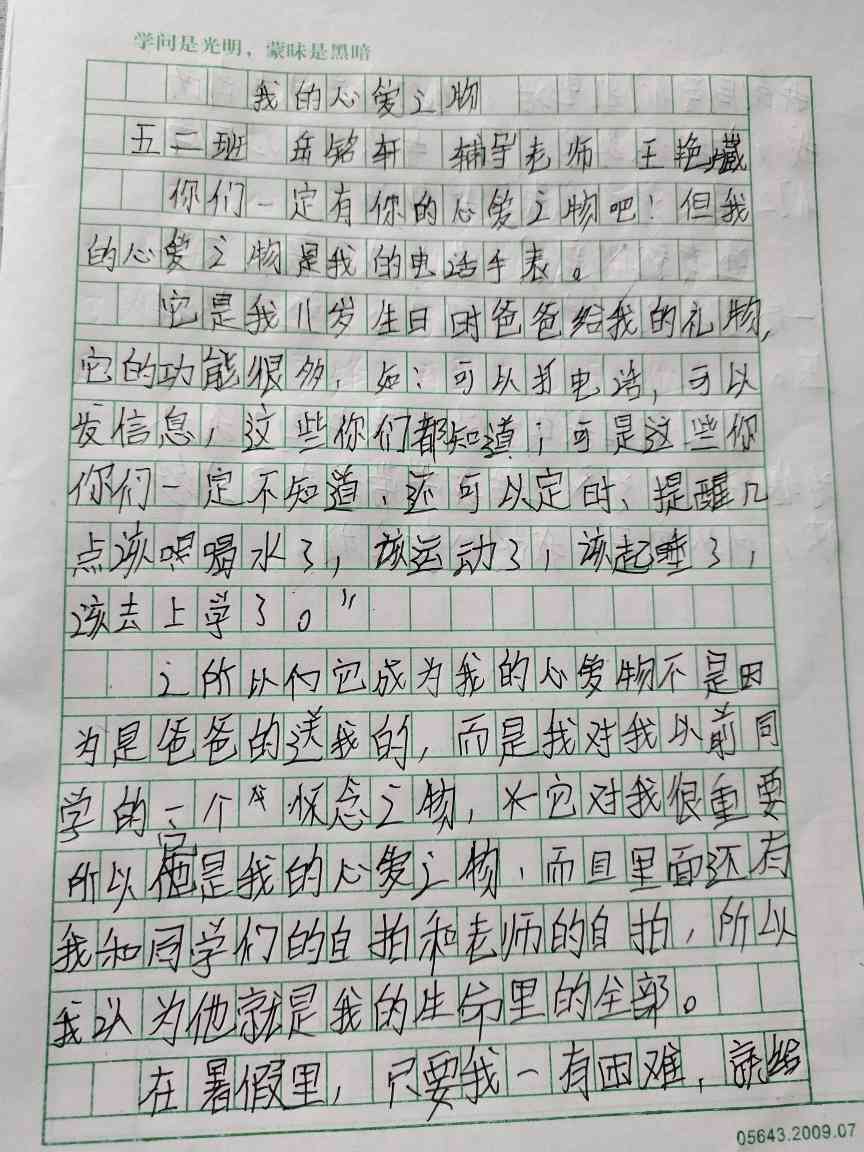 学问是光明，蒙昧是黑暗
我的心爱之物
五二班 岳铭轩 辅导老师 王艳
你们一定有你的心爱之物吧！但我
的心爱之物是我的电话手表。
它是我11岁生日时爸爸给我的礼物，
它的功能很多，如：可以打电话，可以
发信息，这些你们都知道；可是这些你
你们一定不知道，还可以定时、提醒几
点该喝水了，该运动了，该起睡了，
该去上学了。”
之所以它成为我的心爱物不是因
为是爸爸的送我的，而是我对我以前同
学的一个“怀念之物，它对我很重要
所以它是我的心爱之物，而且里面还有
我和同学们的自拍和老师的自拍，所以
我认为他就是我的生命里的全部。
在暑假里，只要我一有困难，就给
05643.2009.07